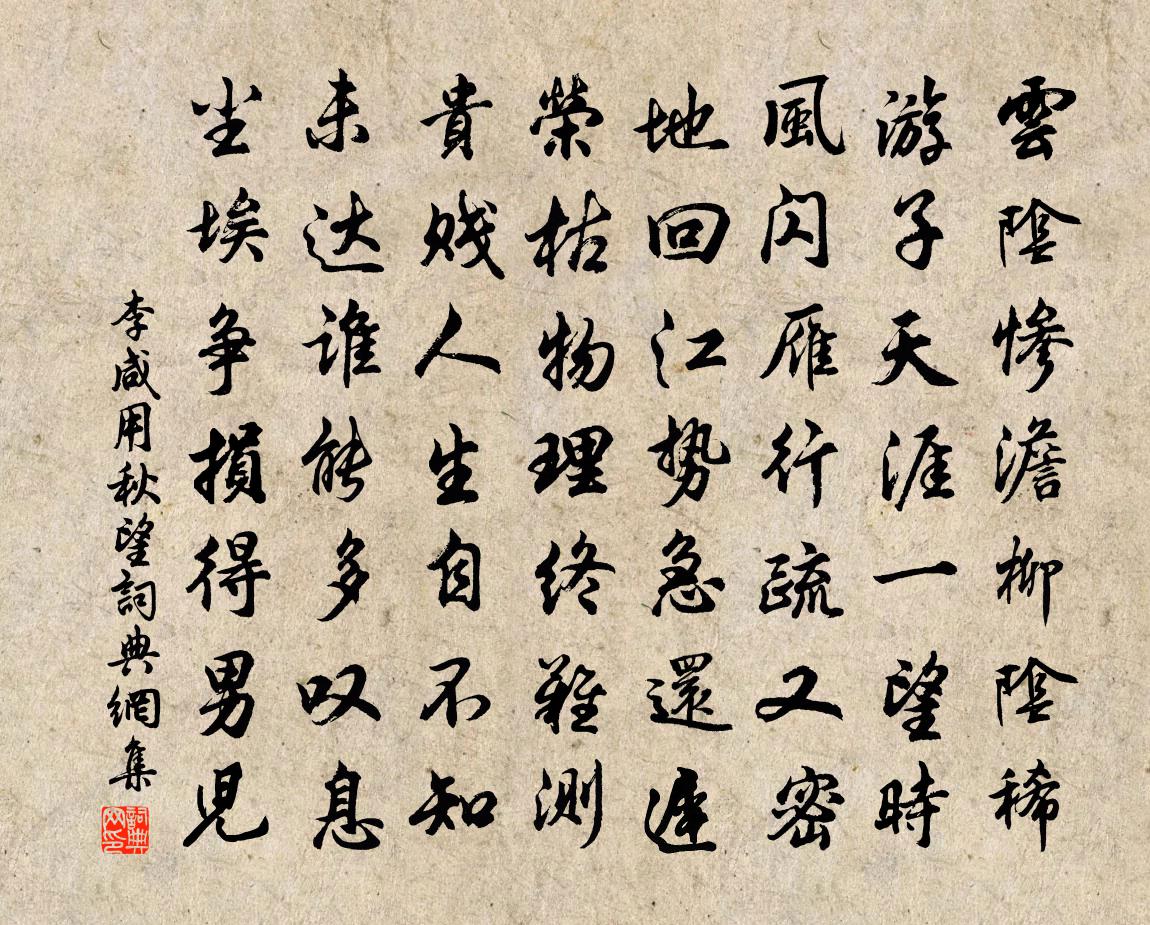 雲陰慘澹柳陰稀
游子天涯一望時
風闪雁行疏又密
地回江势急還遲
榮枯物理终難測
貴贱人生自不知
未达谁能多叹息
尘埃争損得男児
李咸用秋望詞典網集
詞典网印